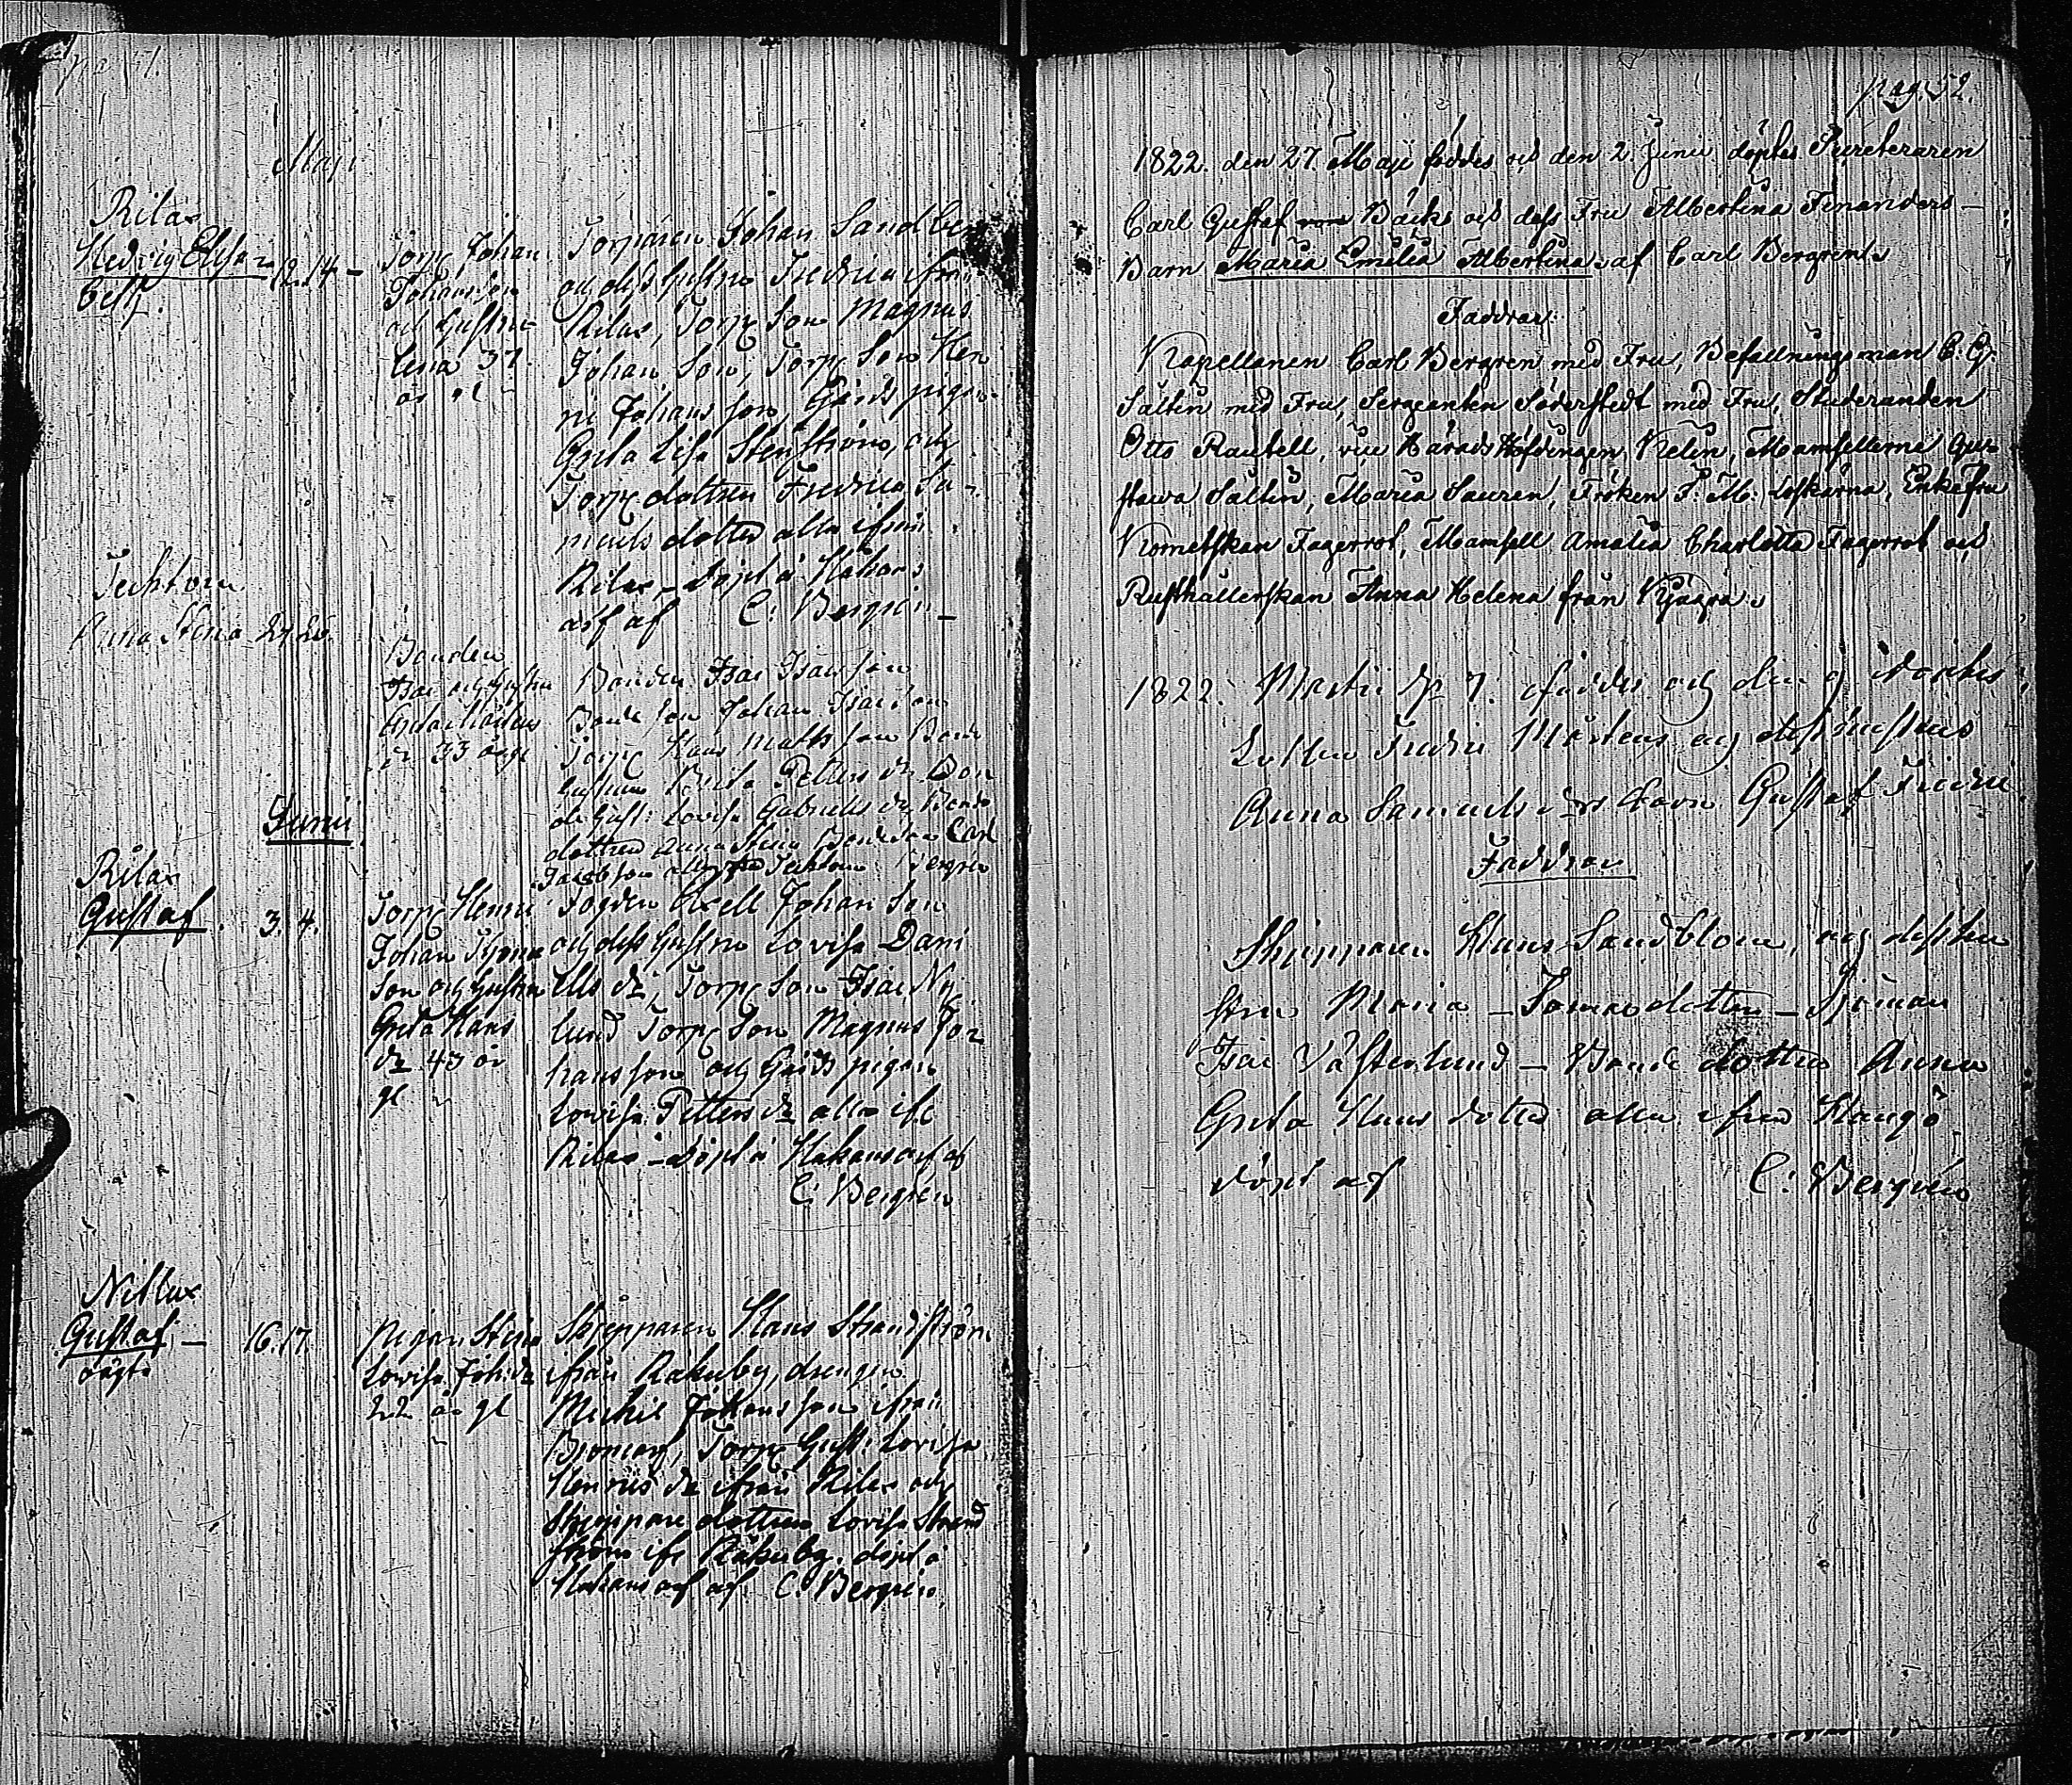 Maji
Rilax
Hedvig Elisa-
beth. 12. 14 -
Torp Johan
Johansson
och Hustru
Lena 37.
år gl
Torparen Johan Sandberg
och dess hustru Fredrica ifrån
Rilax, Torp Son Magnus
Johan Son, Torp Son Hen
ric Johans son, Gårds pigan
Greta Lisa Stenström, och
Torp dottren Fredrica Sa-
muels dotter alla ifrån
Rilax - döpt å Håkans
arf af C: Bergren -
Techtom
Anna Stina
Bonden
Isac och Hustru
33 år gl
Bonden Isac Isacsson
Bonde son Johan Isacson
Torp Hans Mats son Bonde
hustrun Brita Petters dr Bon
de hust: Lovisa Gabriels dr Bonde
dottren Anna Stina Bonde Son Carl
Jacob son alla Techtom Bergren
Junii
Rilax
Gustaf. 3. 4.
Torp Henric
Johan
Son och Hustru
Greta Hans
dr 43 år
gl
Fogden Axell Johan Son
och dess hustru Lovisa Dani
ells dr Torp Son Isac Ny
lund Torp Son Magnus Jo
hans son och Gårds pigan
Lovisa Petters dr alla ifr
Rilax - döpt å Håkansarf af
C: Bergren
Nitlax
Gustaf - 16. 17
oägta
Pigan Stina
Lovisa Joh: dr
22 år gl
Skepparen Hans Strandström
ifrån Rakuby, drengen
Mickel Johans son ifrån
Bromarf, Torp Hust: Lovisa
Henrics dr ifrån Rilax och
Skeppare dottren Lovisa Strand
ström ifr Rakuby. döpt å
Håkans arf af C: Bergren.
pag. 52.
1822. den 27. Maji föddes och den 2. Junii döptes Secreteraren
Carl Gustaf Bäcks och dess Fru Albertina Fenanders
Barn Maria Emelia Albertina af Carl Bergren
Faddrar:
Kapellanen Carl Bergren med Fru, Befallningsman C. G.
Saltin med Fru, Sergeanten Söderstedt med Fru, Studeranden
Otto Rautell, vice Härads Höfdingen Kelin, Mamsellerna Gu-
stava Saltin, Maria Sauren, Fröken F. M. Enke Fru
Kornetskan Fagerrot, Mamsell Amalia Charlotta Fagerrot och
Rusthållerskan Anna Helena från
1822. Martii d. 7. föddes och den 9 döptes
Mårtens och dess hustrus
Anna Samuels drs barn Gustaf Fredric
Faddrar
Skepparen Hans Sandblom, och dess hu
stru Maria - Jonsdotter - Sjöman
Isac Västerlund - Bonde dottren Anna
Greta Hans dotter alla ifrån Hangö
döpt af C: Bergren